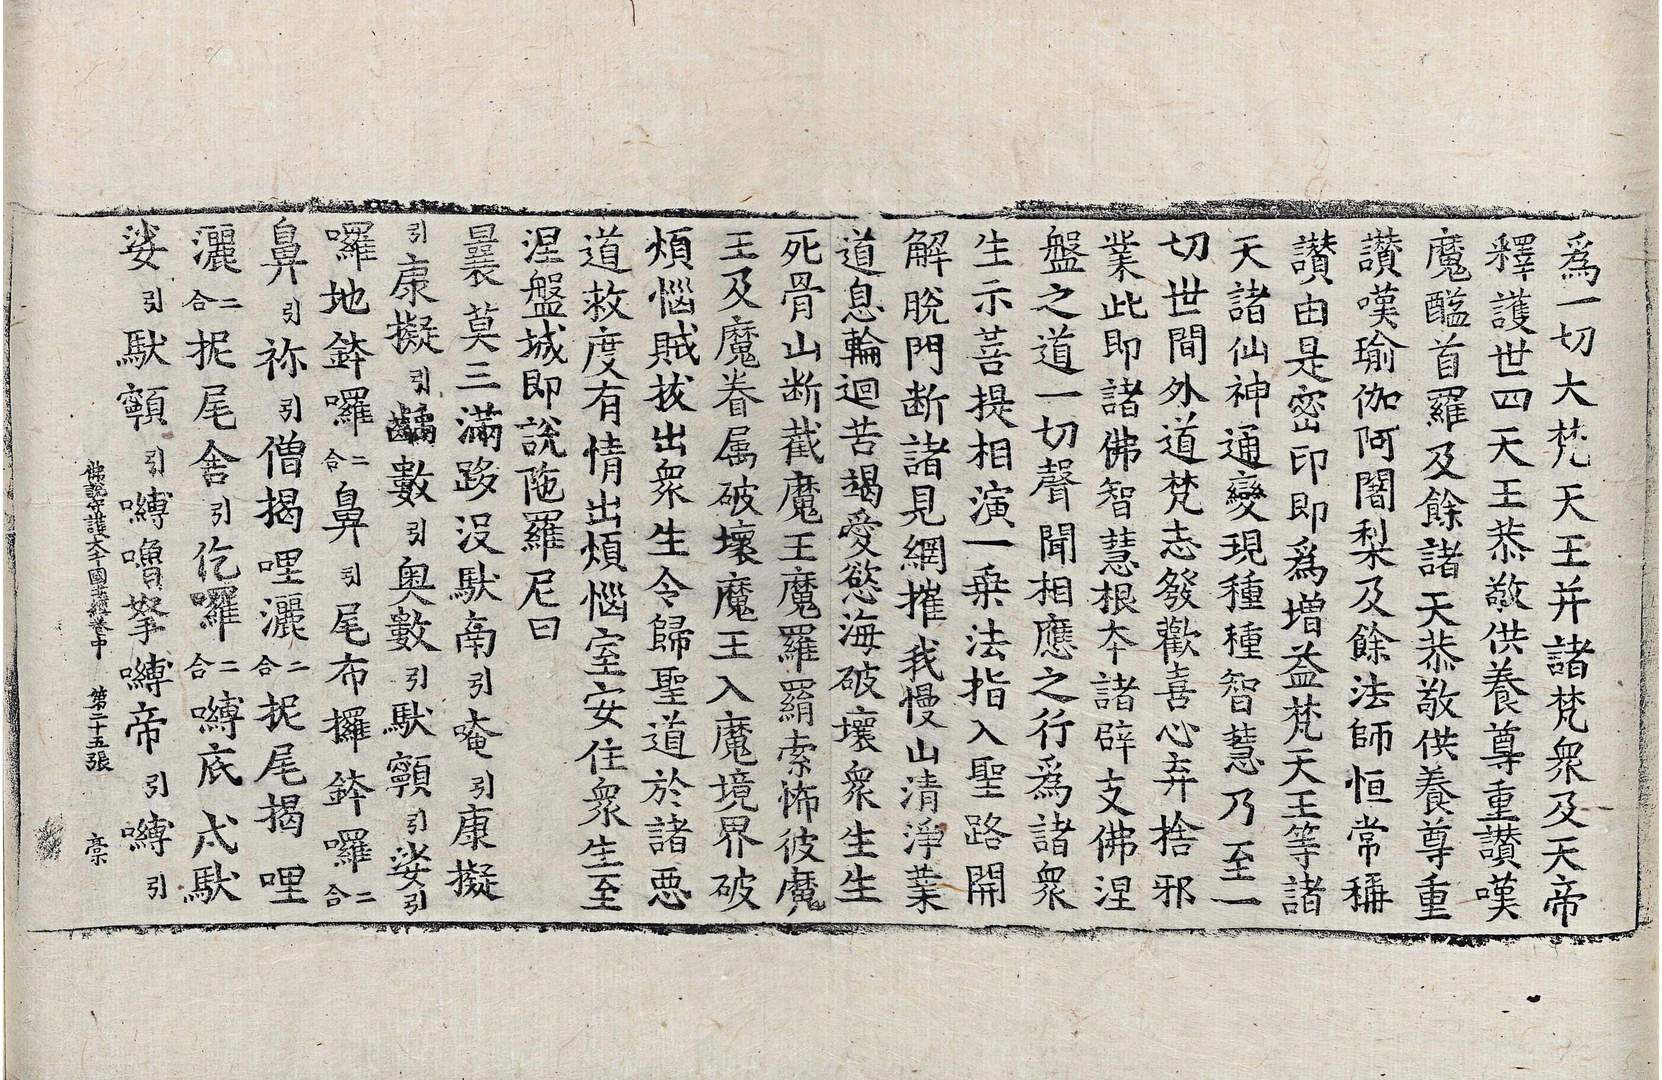 爲一切大梵天王并諸梵衆及天帝
釋護世四天王恭敬供養尊重讃嘆
魔醯首羅及餘諸天恭敬供養尊重
讃嘆瑜伽阿闍梨及餘法師恒常稱
讃由是密印即爲增益梵天王等諸
天諸仙神通變現種種智慧乃至一
切世間外道梵志發歡喜心弃捨邪
業此即諸佛智慧根本諸辟支佛涅
盤之道一切聲聞相應之行爲諸衆
生示菩提相演一乗法指入聖路開
解脫門断諸見網摧我慢山清淨業
道息輪迴苦竭愛慾海破壞衆生生
死骨山断截魔王魔羅羂索怖彼魔
王及魔眷属破壞魔王入魔境界破
煩惱賊拔出衆生令歸聖道於諸悪
道救度有情出煩惱室安住衆生至
涅盤城即說陁羅尼曰
曩莫三滿跢沒馱南引唵引康擬
引康擬引齲數引奥數引馱顐引娑引
囉地鉢囉二合鼻引尾布攞鉢囉二合
鼻引祢引僧揭哩灑二合抳尾揭哩
灑二合抳尾舍引仡囉二合嚩底弍馱
娑引馱顐引嚩嚕拏嚩帝引嚩引
佛說守護大千國土經卷中 第二十五張 㐭